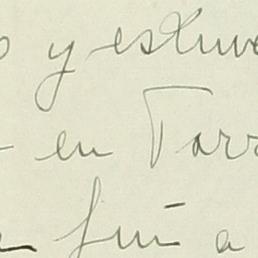 y estuve
en Torr
fui a